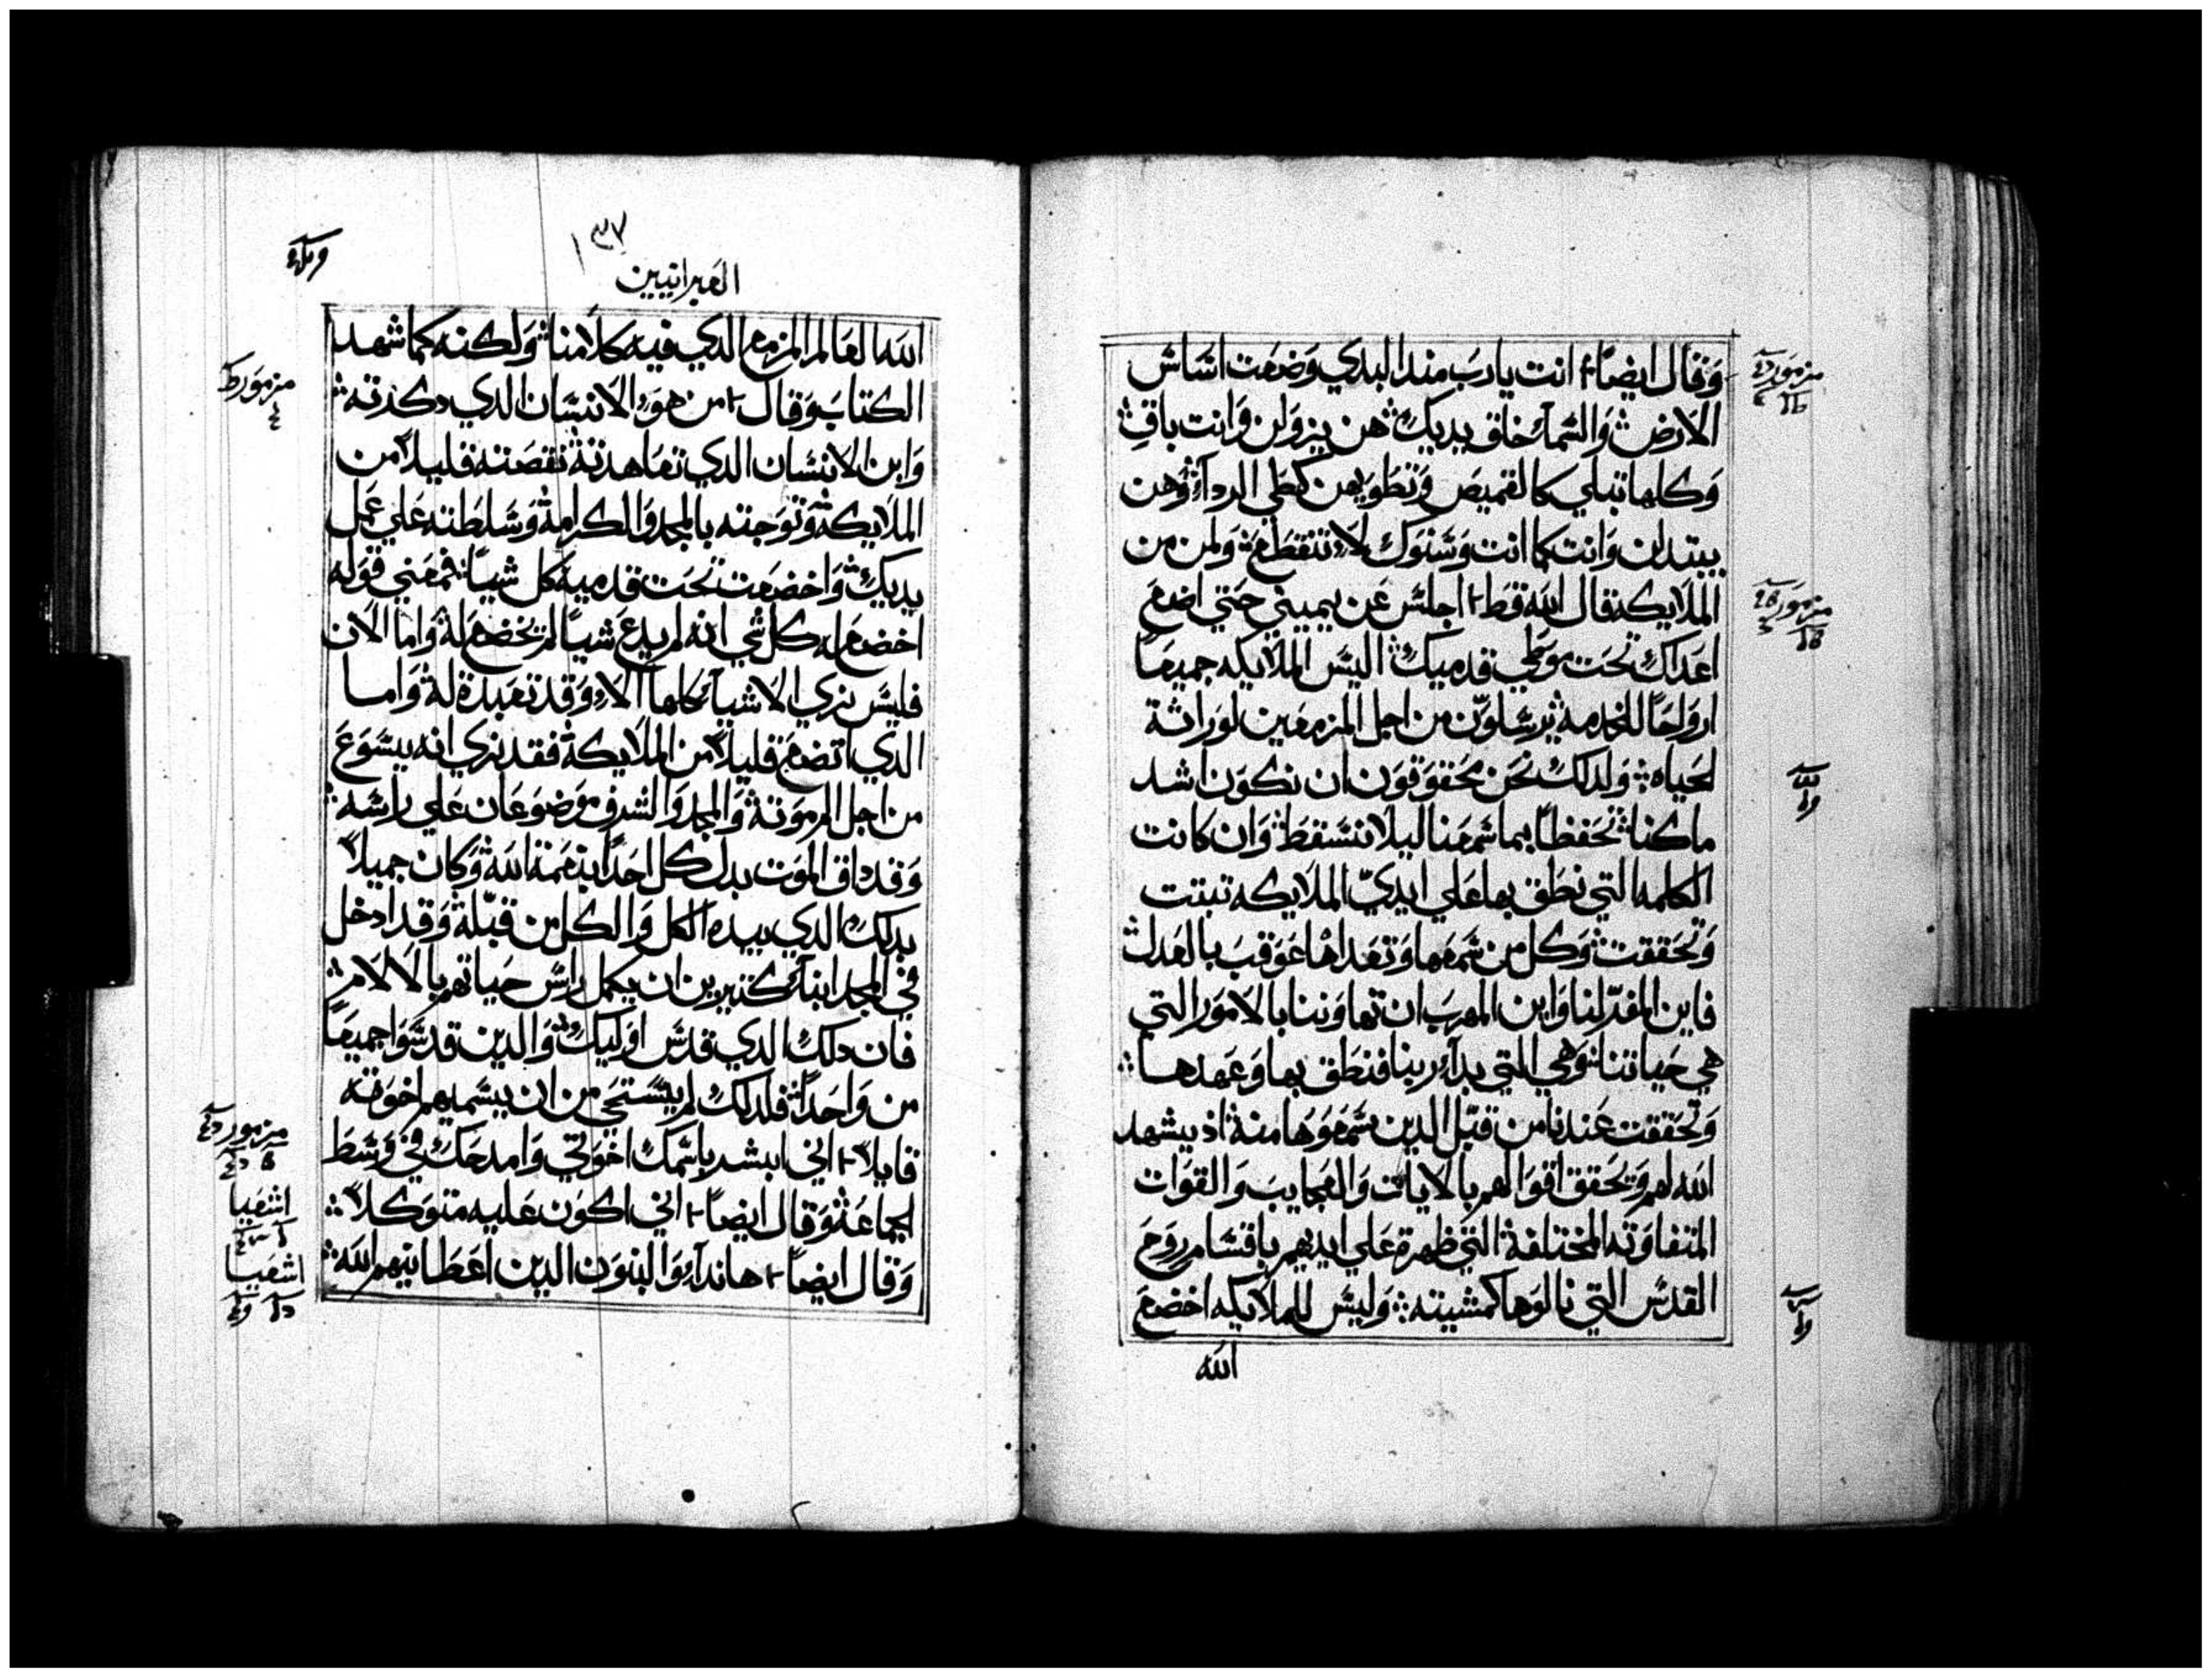 وَقال ايضاً انت يارب مند البدي وَضعت اساس
الارض وَالسماء خلق يديك هن يزولن وَانت باقٍ
وَكلها تبلي كالقميص وَتطويهن كطي الرداء وَهن
يبتدلن وَانت كما انت وَسنوك لا تنقطع وَلمن من
الملايكه قال الله قط اجلس عن يميني حتي اضع
اعداك تحت موطي قدميك اليس الملايكه جميعاً
ارواحاً للخدمه يرسلون من اجل المزمعين لوراثة
الحياه وَلدلك نحن محقوقون ان نكون اشد
ماكنا تحفظاً بما سمعنا ليلا نسقط وَان كانت
الكلمه التي نطق بها علي ايدي الملايكه تبتت
وَتحققت وَكل من سمعها وَتعداها عوقب بالعدل
فاين المفر لنا وَاين المهرب ان تهاوَننا بالامور التي
هي حياتنا وَهي التي بداء ربنا فنطق بها وَعهدها
وَتحققت عندنا من قبل الدين سمعوها منه اذ يشهد
الله لهم وَيحقق اقوالهم بالايات وَالعجايب وَالقوات
المتفاوته المختلفة التي ظهرة علي ايديهم باقسام روح
القدس التي نالوها كمشيته وَليس للملايكه اخضع
الله
مزمور
مزمور
١٣٧
العبرانيين
الله العالم المزمع الدي فيه كلامنا وَلكنه كما شهد
الكتاب وَقال من هو الانسان الدي دكرته
وَابن الانسان الدي تعاهدته نقصته قليلاً من
الملايكة وَتوجته بالمجد وَالكرامة وَسلطته علي عمل
يديك وَاخضعت تحت قدميه كل شيياً فمعني قوله
اخضع له كل شي انه لم يدع شيياً لم يخضع له وَاما الان
فليس نري الاشياء كلها الاء وَقد تعبدة له وَاما
الدي اتضع قليلاً من الملايكة فقد نري انه يسوع
من اجل الم موته وَالمجد وَالشرف موضوعان علي راسه
وَقد داق الموت بدل كل احداً بنعمة الله وَكان جميلاً
بدلك الدي بيده الكل وَالكل من قبله وَقد ادخل
في المجد ابناء كتيرين ان يكمل راس حياتهم بالالام
فان دلك الدي قدس اوليك وَالدين قدسوا جميعاً
من وَاحداً فلدلك لم يستحي من ان يسميهم اخوته
قايلاً اني ابشر باسمك اخوتي وَامدحك في وَسط
الجماعة وَقال ايضاً اني اكون عليه متوكلاً
وَقال ايضاً هاندا وَالبنون الدين اعطانيهم الله
مزمور
مزمور
اشعيا
اشعيا